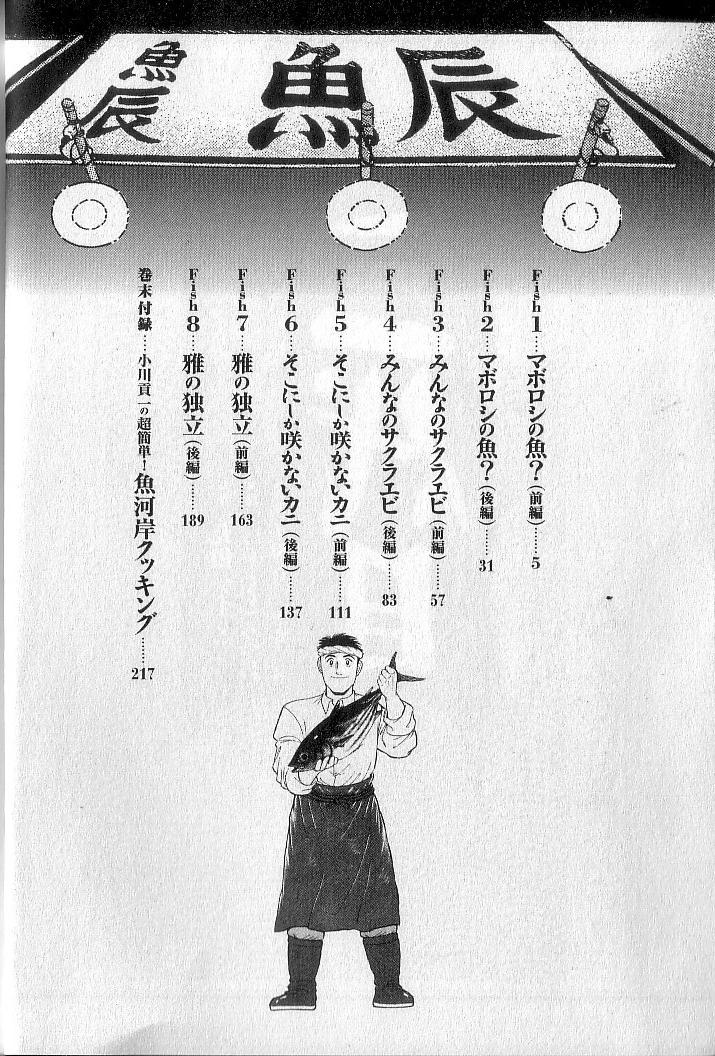 魚辰
魚辰
Fish1……マボロシの魚？（前編）……5
Fish2……マボロシの魚？（後編）……31
Fish3……みんなのサクラエビ（前編）……57
Fish4……みんなのサクラエビ（後編）……83
Fish5……そこにしか咲かないカニ（前編）……111
Fish6……そこにしか咲かないカニ（後編）……137
Fish7……雅の独立（前編）……163
Fish8……雅の独立（後編）……189
巻末付録……小川貢一の超簡単！魚河岸クッキング……217